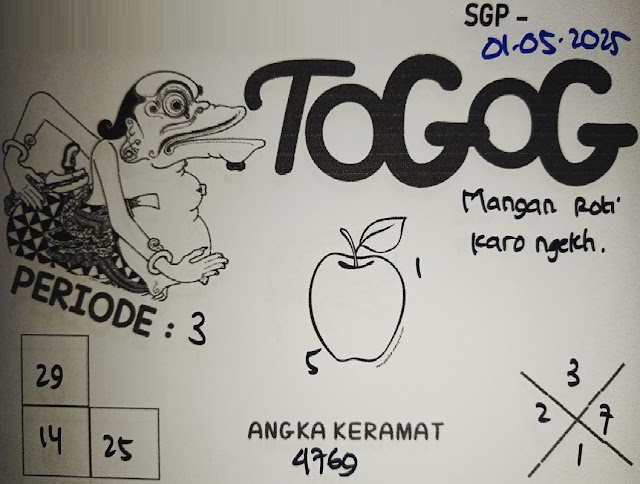 SGP -
01.05.2025
TOGOG
Mangan Roti
karo ngelih.
PERIODE : 3
1
5
29
14 25
ANGKA KERAMAT
4769
3
2 7
1